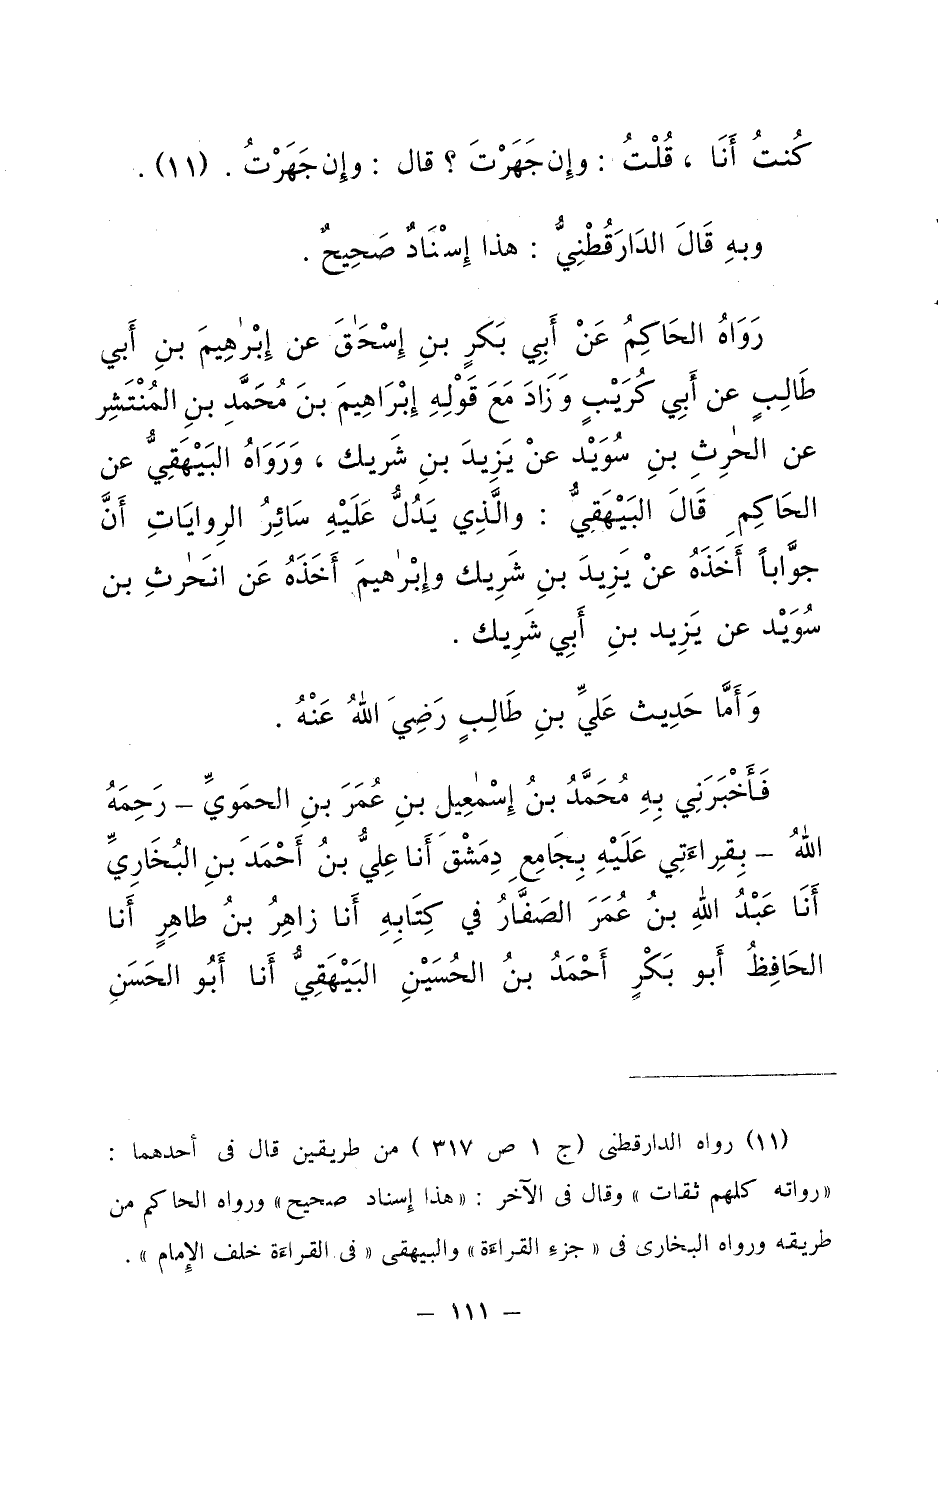 كُنتُ أَنَا ، قُلْتُ : وإن جَهَرْتَ ؟ قال : وإن جَهَرْتُ . (١١) .
وبهِ قَالَ الدَارَقُطْنِيُّ : هذا إِسْنَادٌ صَحِيحٌ .
رَوَاهُ الحَاكِمُ عَنْ أَبِي بَكرٍ بنِ إِسْحَٰقَ عن إِبْرٰهِيمَ بنِ أَبي
طَالِبٍ عن أَبِي كُرَيْبٍ وَزَادَ مَعَ قَوْلِهِ إِبْرَاهِيمَ بنَ مُحَمَّدِ بنِ المُنْتَشِرِ
عن الحٰرِثِ بنِ سُوَيْد عنْ يَزِيدَ بنِ شَريك ، وَرَوَاهُ البَيْهَقِيُّ عن
الحَاكِمِ قَالَ البَيْهَقِيُّ : والَّذِي يَدُلُّ عَلَيْهِ سَائِرُ الرِوايَاتِ أَنَّ
جوَّاباً أَخَذَهُ عنْ يَزِيدَ بنِ شَرِيك وإِبْرٰهيمَ أَخَذَهُ عَن انحَٰرثِ بن
سُوَيْد عن يَزِيد بنِ أَبِي شَرِيك .
وَأَمَّا حَدِيث عَليِّ بنِ طَالِبٍ رَضِيَ اللهُ عَنْهُ .
فَأَخْبَرَنِي بِهِ مُحَمَّدُ بنُ إِسْمٰعِيل بنِ عُمَرَ بنِ الحمَويِّ – رَحِمَهُ
اللهُ – بِقِراءَتِي عَلَيْهِ بِجَامِعِ دِمَشْقَ أَنا عِليُّ بنُ أَحْمَدَ بنِ البُخَارِيِّ
أَنَا عَبْدُ اللهِ بنُ عُمَرَ الصَفَّارُ في كِتَابِهِ أَنا زاهِرُ بنُ طاهِرٍ أَنا
الحَافِظُ أَبو بَكْرٍ أَحْمَدُ بنُ الحُسَيْنِ البَيْهَقِيُّ أَنا أَبُو الحَسَنِ
(١١) رواه الدارقطنى (ج ١ ص ٣١٧ ) من طريقين قال فى أحدهما :
«رواته كلهم ثقات » وقال فى الآخر : «هذا إسناد صحيح» ورواه الحاكم من
طريقه ورواه البخارى فى « جزء القراءة» والبيهقى « فى القراءة خلف الإمام » .
– ١١١ –